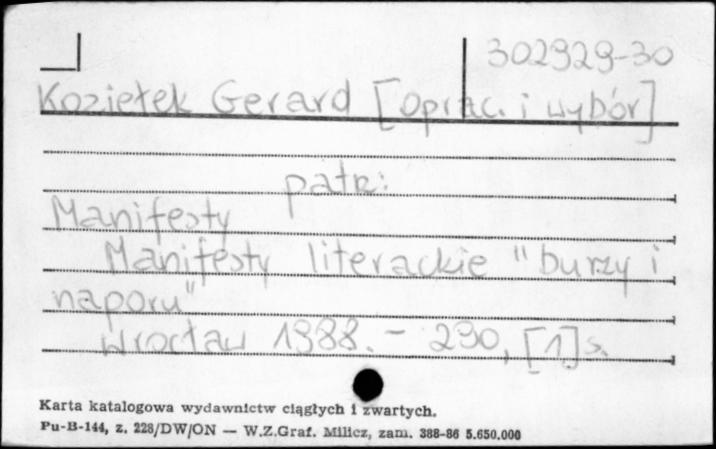 302929-30
Koziełek Gerard [oprac. i wybór]
patrz:
Manifesty
Manifesty literackie "burzy i
naporu"
Wrocław 1988. - 290, [1] s.
Karta katalogowa wydawnictw ciągłych i zwartych.
Pu-B-144, z. 228/DW/ON — W.Z.Graf. Milicz, zam. 388-86 5.650.000